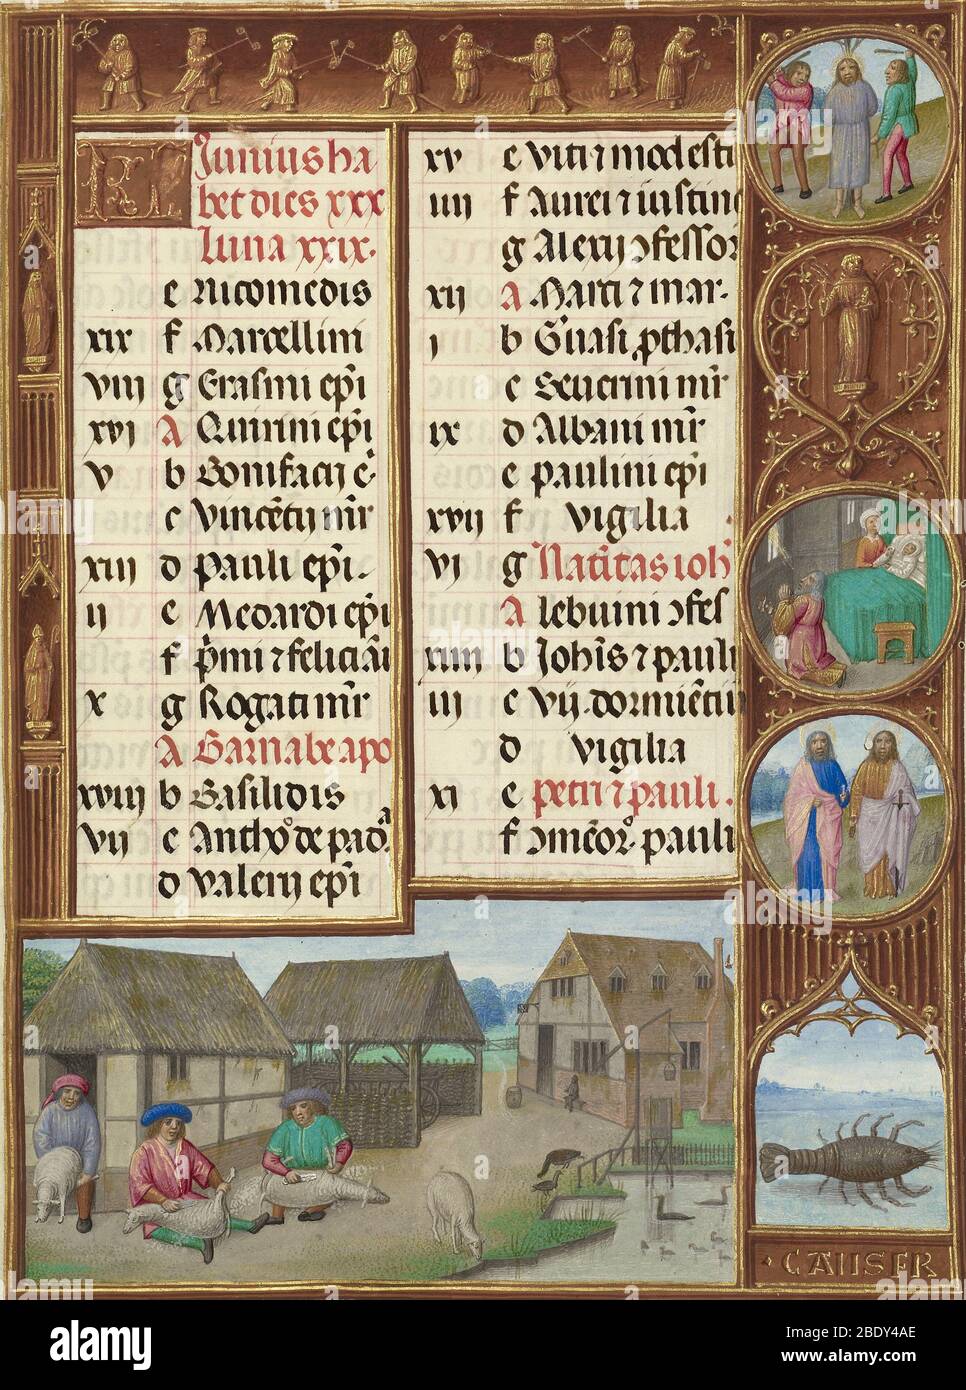 KL Junius ha
bet dies xxx
Luna xxix.
e Nicomedis
xix f Marcellini
viii g Erasmi ep̄i
xvi A Quirini ep̄i
v b Bonifacij
c Vincētij mr̄
xiii d Pauli ep̄i.
ii e Medardi ep̄i
f p̄mi ⁊ feliciāi
x g Rogati mr̄
A Barnabe apo
xviii b Basilidis
vii c Anthoͦ de padᷓ
d Valerij ep̄i
xv e Viti ⁊ modesti
iiii f Aurei ⁊ iustine
g Alexij ↄfessor
xii A Marci ⁊ mar.
i b Gͥuasi ꝓthasi
c Seuerini mr̄
ix d Albani mr̄
e Paulini ep̄i
xvii f vigilia
vi g Nat̄itas ioh̄
A lebuini ↄfes
xiiii b Joh̄is ⁊ pauli
iii c Vij. dormiētiu
d vigilia
xi e Petri ⁊ pauli.
f ↄmēoꝛ. pauli
CANSER
alamy
Image ID: 2BDY4AE
www.alamy.com